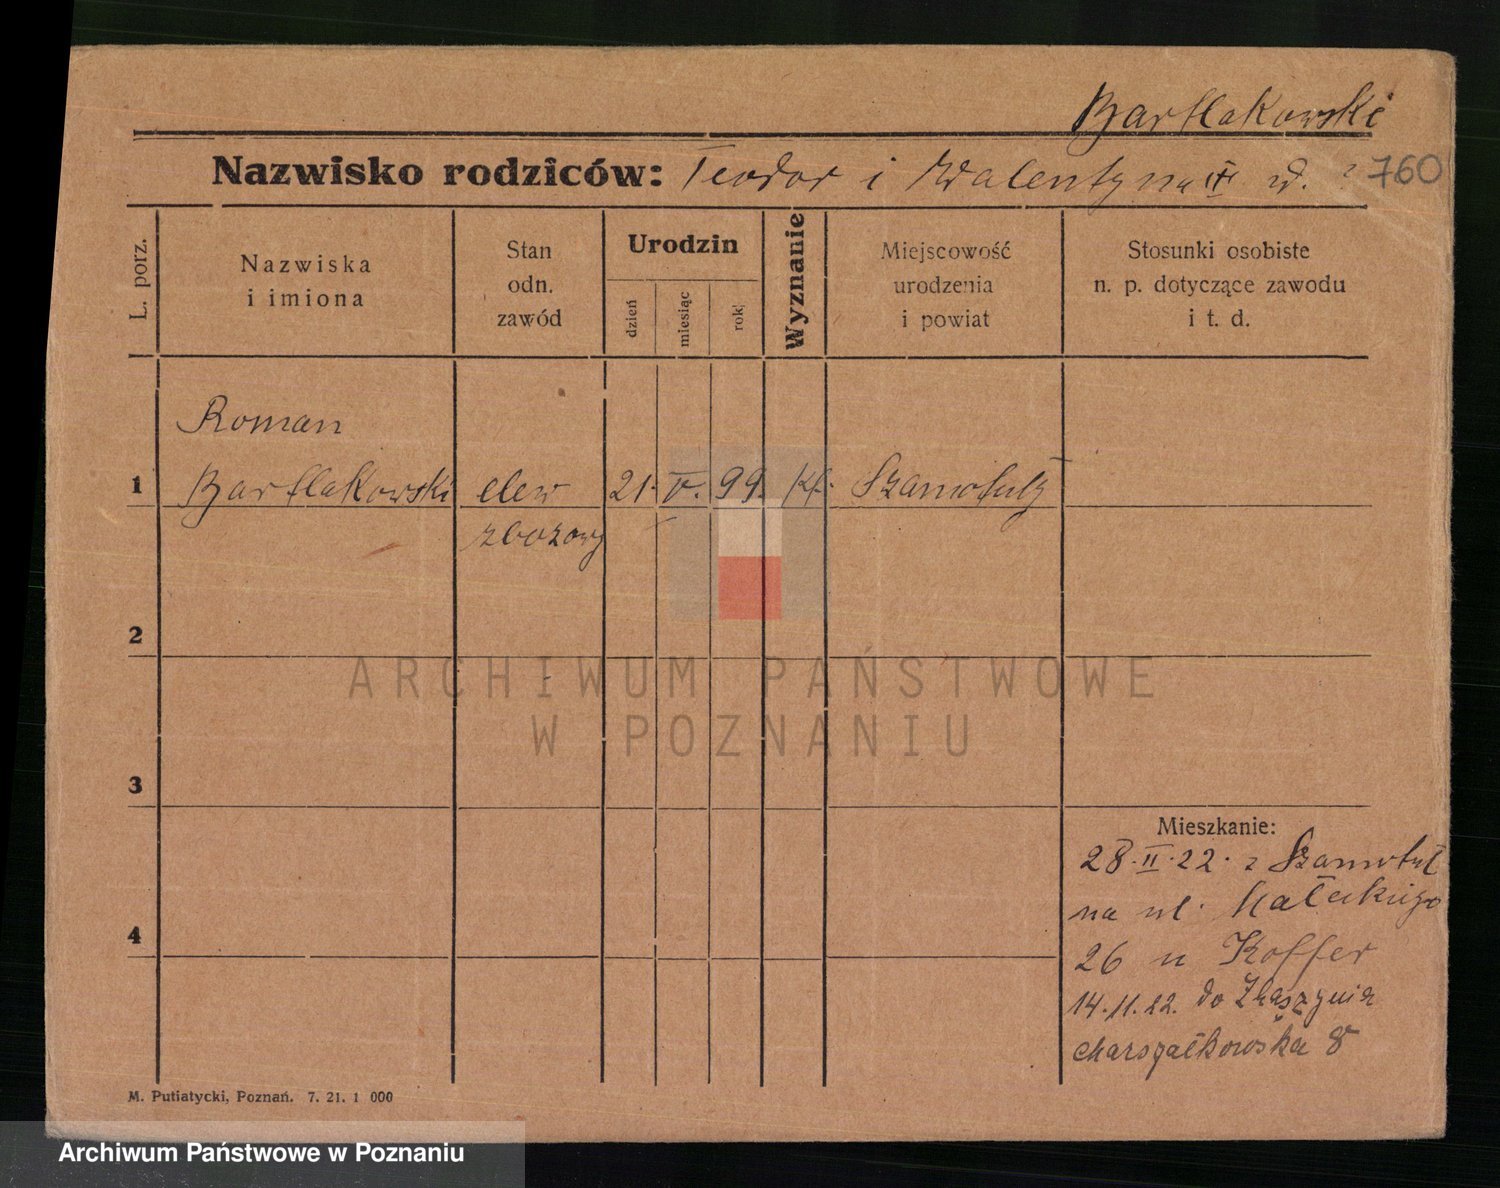 Bartlakowski
Nazwisko rodziców: Teodor i Walentyna
760
L. porz.
Nazwiska
i imiona
Stan
odn.
zawód
Urodzin
dzień
miesiąc
rok
Wyznanie
Miejscowość
urodzenia
i powiat
Stosunki osobiste
n. p. dotyczące zawodu
i t. d.
Roman
1 Bartlakowski elew 21. V. 99. kt. Szamotuły
zbożowy
2
3
4
Mieszkanie:
28.II.22. z Szamotuł
na ul. Małeckiego
26 u Koffer
14.11.22. do Zbąszynia
Marszałkowska 8
M. Putiatycki, Poznań. 7. 21. 1 000
ARCHIWUM PAŃSTWOWE
W POZNANIU
Archiwum Państwowe w Poznaniu